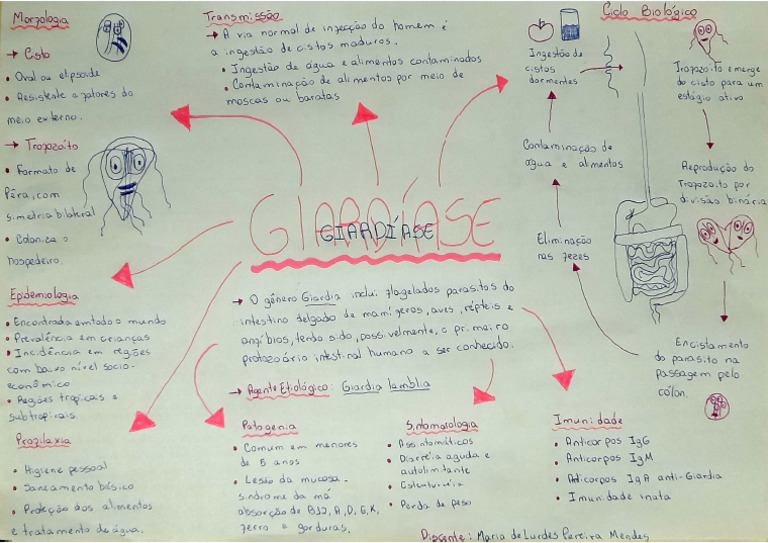 Morfologia
→ Cisto
• Oval ou elipsoide
• Resistente a fatores do
meio externo.
→ Trofozoíto
• Formato de
Pêra, com
simetria bilateral
• Coloniza o
hospedeiro.
Transmissão
→ A via normal de infecção do homem é
a ingestão de cistos maduros.
• Ingestão de água e alimentos contaminados
• Contaminação de alimentos por meio de
moscas ou baratas
Ciclo Biológico
Ingestão de
cistos
dormentes
Trofozoíto emerge
do cisto para um
estágio ativo
Reprodução do
Trofozoíto por
divisão binária
Encistamento
do parasito na
passagem pelo
cólon.
Eliminação
nas fezes
Contaminação de
água e alimentos
GIARDÍASE
GIARDÍASE
→ O gênero Giardia inclui flagelados parasitos do
intestino delgado de mamíferos, aves, répteis e
anfíbios, tendo sido, possivelmente, o primeiro
protozoário intestinal humano a ser conhecido.
→ Agente Etiológico: Giardia lamblia
Epidemiologia
• Encontrada em todo o mundo
• Prevalência em crianças
• Incidência em regiões
com baixo nível socio-
econômico
• Regiões tropicais e
subtropicais.
Profilaxia
• Higiene pessoal
• Saneamento básico
• Proteção dos alimentos
e tratamento de água.
Patogenia
• Comum em menores
de 5 anos
• Lesão da mucosa -
síndrome da má
absorção de B12, A, D, E, K,
ferro e gorduras.
Sintomatologia
• Assintomáticos
• Diarréia aguda e
autolimitante
• Esteatorréia
• Perda de peso
Imunidade
• Anticorpos IgG
• Anticorpos IgM
• Anticorpos IgA anti-Giardia
• Imunidade inata
Discente: Maria de Lurdes Pereira Mendes